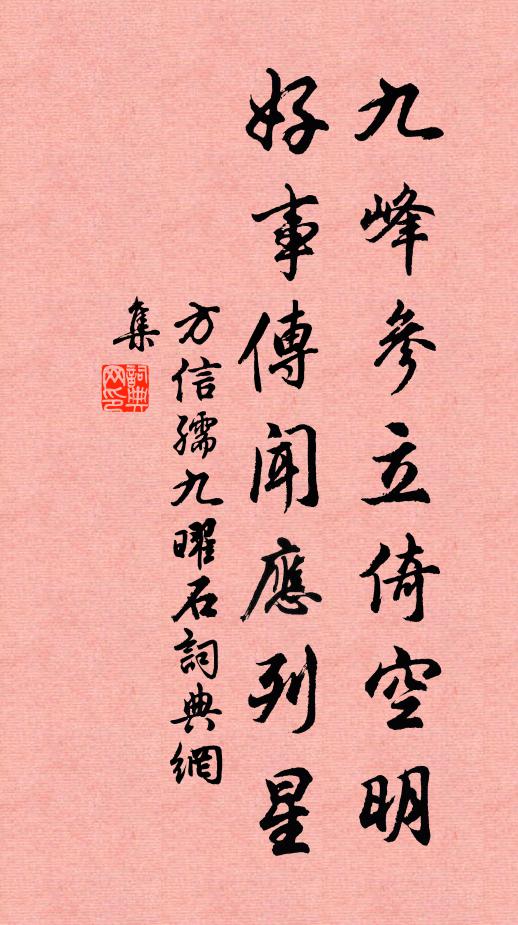 九峰參立倚空明
好事傳聞應列星
方信孺九曜石詞典網
集
詞典
网印